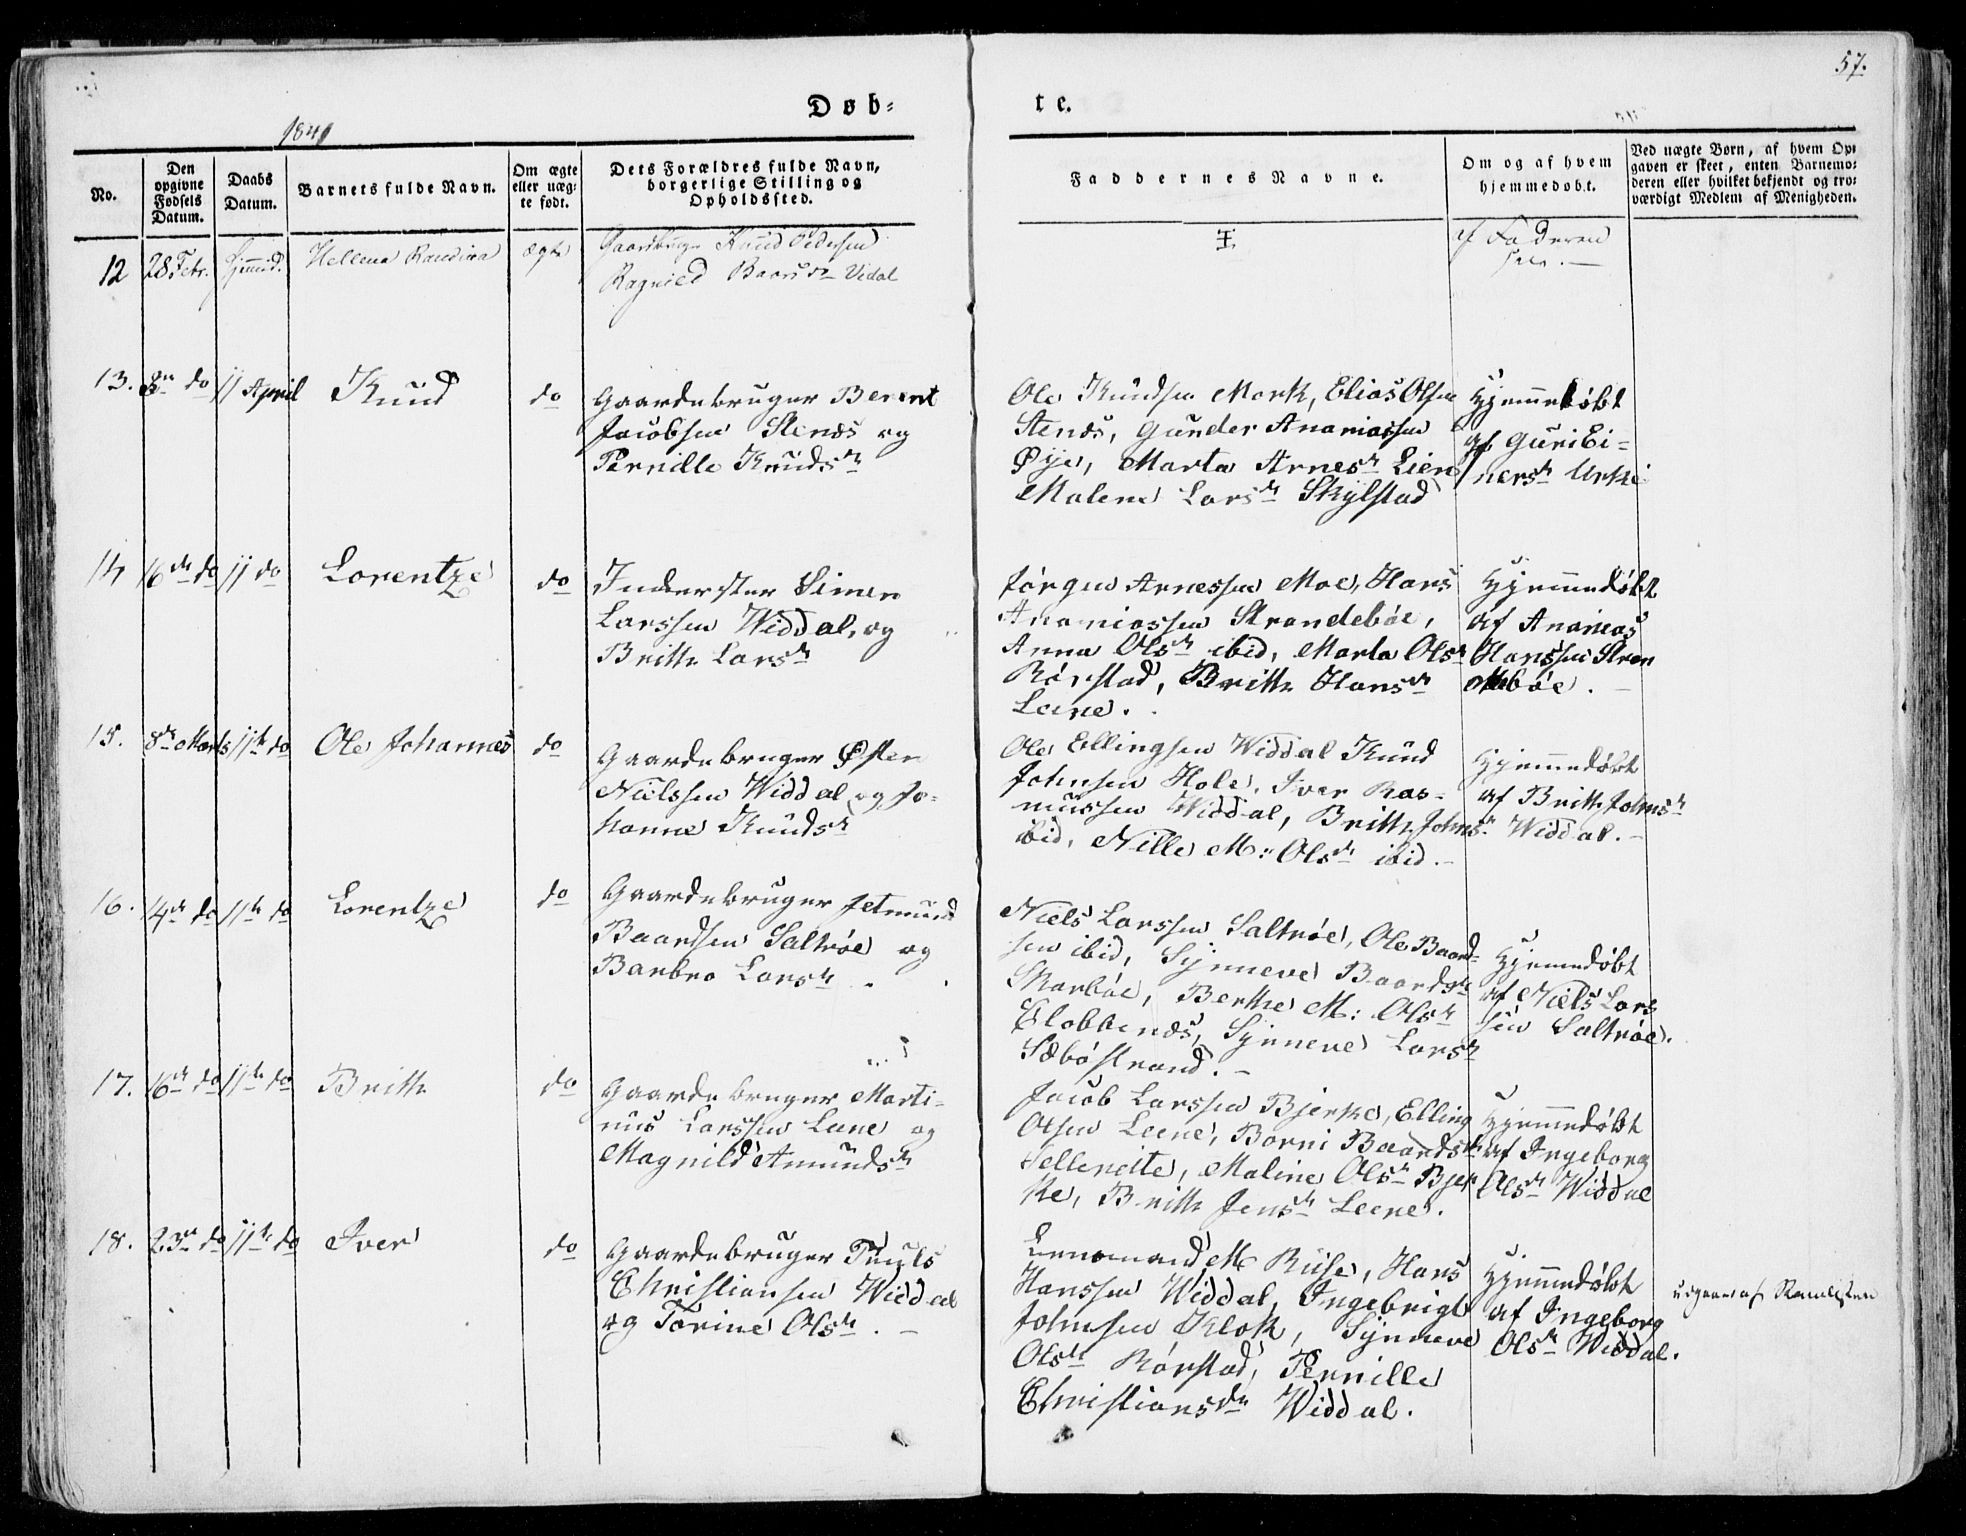 57.
Døb=
te.
1841
No.
Den opgivne Fødsels Datum.
Daabs Datum.
Barnets fulde Navn.
Om ægte eller uæg= te født.
Dets Forældres fulde Navn, borgerlige Stilling og Opholdssted.
Faddernes Navne.
Om og af hvem hjemmedøbt.
Ved uægte Børn, af hvem Op= gaven er skeet, enten Barnemo= deren eller hvilket bekjendt og tro= værdigt Medlem af Menigheden.
12 28 Febr. Hellena Randina ægte Gaardbruger Knud Pedersen
Ragnild Baards Dr Vidal
af Faderen
13. do 11 April Knud do Gaardebruger Berent
Jacobsen Stenæs og
Pernille Knudsdr
Ole Knudsen Mork, Elias Olsen
Stenæs, Gunder Ananiassen
Øye, Marta Arnesdr Lien
Malene Larsdr Skylstad
Hjemmedøbt
af Guri Ei=
nersdr Urke
14 16de do 11 do Lorentze do Inderster Simen
Larssen Widdal, og
Brithe Larsdr
Jørgen Arnessen Moe, Hans
Ananiassen Strandebøe,
Anna Olsdr ibid, Marta Olsdr
Rørstad, Brithe Hansdr
Leene.
Hjemmedøbt
af Ananias
Hanssen Stran
debøe.
15. 8de Marts 11te do Ole Johannes do Gaardebruger Østen
Nielssen Widdal og Jo=
hanne Knudsdr
Ole Ellingsen Widdal Knud
Johnsen Hole, Iver Ras=
mussen Widdal, Brithe Johnsdr
ibid, Nille M: Olsdr ibid.
Hjemmedøbt
af Brithe Johnsdr
Widdal.
16. 14de do 11te do Lorentze do Gaardebruger Jetmund
Baardsen Saltrøe og
Barbro Larsdr
Niels Larssen Saltrøe, Ole Baard=
sen ibid, Synneve Baardsdr
Skarbøe, Berthe M: Olsdr
Clobbenæs, Synneve Larsdr
Sæbøstrand.
Hjemmedøbt
af Niels Lars
sen Saltrøe.
17. 16de do 11te do Brithe do Gaardebruger Marti=
nus Larssen Leene og
Magnild Amundsdr
Jacob Larssen Bjerke, Elling
Olsen Leene, Borni Baardsdr
Selleneite, Maline Olsdr Bjer
ke, Brithe Jensdr Leene.
Hjemmedøbt
af Ingeborg
Olsdr Widdal
18. 23de do 11te do Iver do Gaardebruger Truuls
Christiansen Widdal
og Torine Olsdr.
Lensmand M Riise, Hans
Hanssen Widdal, Ingebrigt
Johnsen Klok, Synneve
Olsdr Rørstad, Pernille
Christiansdr Widdal.
Hjemmedøbt
af Ingeborg
Olsdr Widdal.